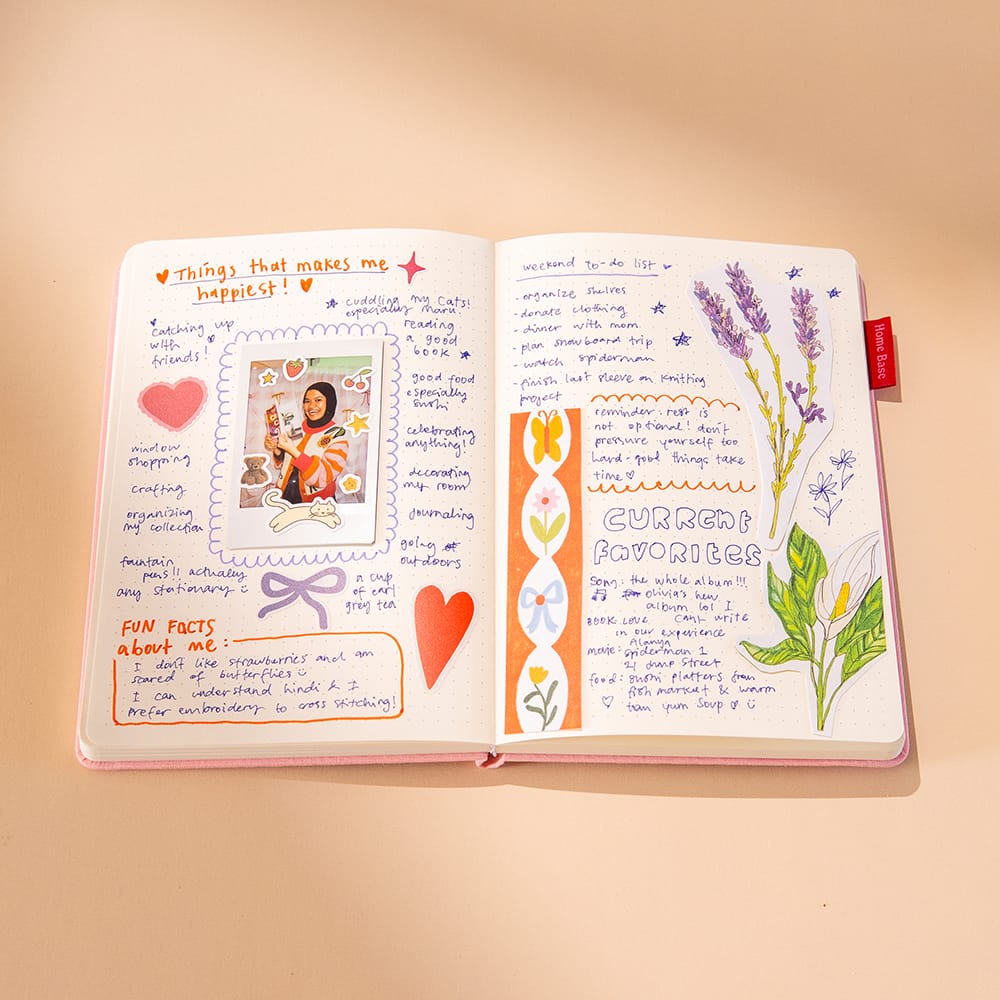 Things that makes me
happiest!
catching up
with
friends!
window
shopping
crafting
organizing
my collection
fountain
pens!! actually
any stationary
cuddling my cats!
especially maru!
reading
a good
book
good food
especially
sushi
celebrating
anything!
decorating
my room
journaling
going
outdoors
a cup
of earl
grey tea
FUN FACTS
about me:
I don't like strawberries and am
scared of butterflies
I can understand hindi & I
prefer embroidery to cross stitching!
weekend to-do list
- organize shelves
- donate clothing
- dinner with mom
- plan snowboard trip
- watch spiderman
- finish last sleeve on knitting
project
reminder: rest is
not optional! don't
pressure yourself too
hard - good things take
time
CURRENT
FAVORITES
song: the whole album!!!
olivia's new
album lol I
BOOK: LOVE can't write
in our experience
Alanya
movie: spiderman 1
21 Jump Street
food: sushi platters from
fish market & warm
tom yum soup
Home Base